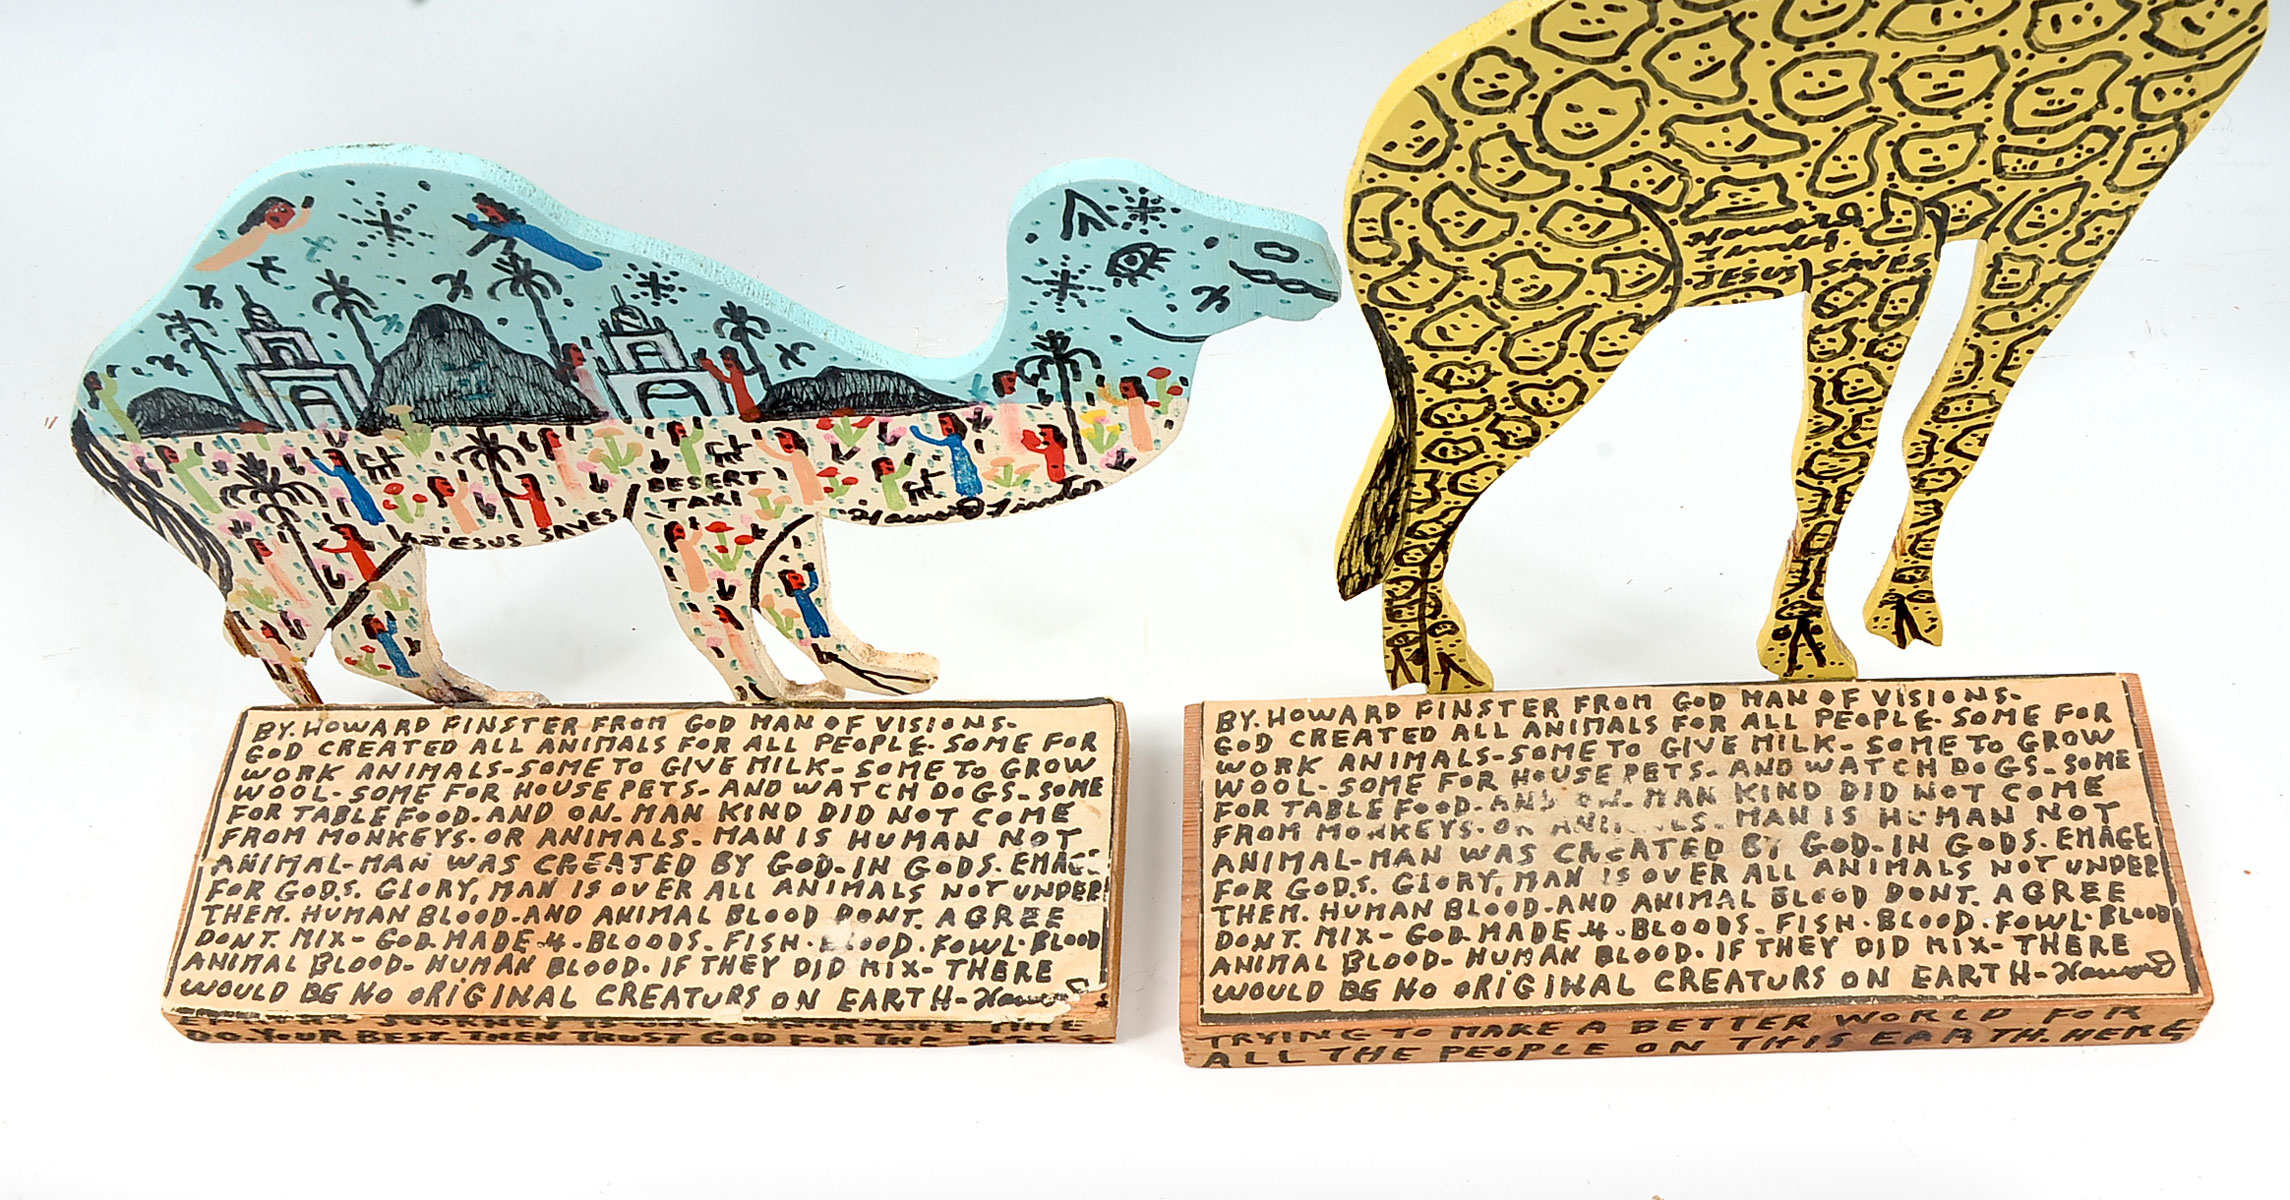 DESERT
TAXI
JESUS SAVES
Howard Finster
BY. HOWARD FINSTER FROM GOD MAN OF VISIONS-
GOD CREATED ALL ANIMALS FOR ALL PEOPLE. SOME FOR
WORK ANIMALS-SOME TO GIVE MILK- SOME TO GROW
WOOL- SOME FOR HOUSE PETS- AND WATCH DOGS- SOME
FOR TABLE FOOD. AND ON- MAN KIND DID NOT COME
FROM MONKEYS. OR ANIMALS- MAN IS HUMAN NOT
ANIMAL-MAN WAS CREATED BY GOD-IN GODS. EMAGE
FOR GOD.S. GLORY, MAN IS OVER ALL ANIMALS NOT UNDER
THEM. HUMAN BLOOD-AND ANIMAL BLOOD DONT. AGREE
DONT. MIX- GOD MADE 4. BLOODS. FISH. BLOOD. FOWL. BLOOD
ANIMAL BLOOD- HUMAN BLOOD. IF THEY DID MIX- THERE
WOULD BE NO ORIGINAL CREATURS ON EARTH- Howard
LIFE TIME
DO. YOUR BEST THEN TRUST GOD FOR THE
Howard
Finster
JESUS SAVES
BY. HOWARD FINSTER FROM GOD MAN OF VISIONS-
GOD CREATED ALL ANIMALS FOR ALL PEOPLE. SOME FOR
WORK ANIMALS-SOME TO GIVE MILK- SOME TO GROW
WOOL- SOME FOR HOUSE PETS- AND WATCH DOGS- SOME
FOR TABLE FOOD. AND ON- MAN KIND DID NOT COME
FROM MONKEYS. OR ANIMALS- MAN IS HUMAN NOT
ANIMAL-MAN WAS CREATED BY GOD-IN GODS. EMAGE
FOR GOD.S. GLORY, MAN IS OVER ALL ANIMALS NOT UNDER
THEM. HUMAN BLOOD-AND ANIMAL BLOOD DONT. AGREE
DONT. MIX- GOD MADE 4. BLOODS. FISH. BLOOD. FOWL. BLOOD
ANIMAL BLOOD- HUMAN BLOOD. IF THEY DID MIX- THERE
WOULD BE NO ORIGINAL CREATURS ON EARTH- Howard
TRYING TO MAKE A BETTER WORLD FOR
ALL THE PEOPLE ON THIS EARTH. HERE